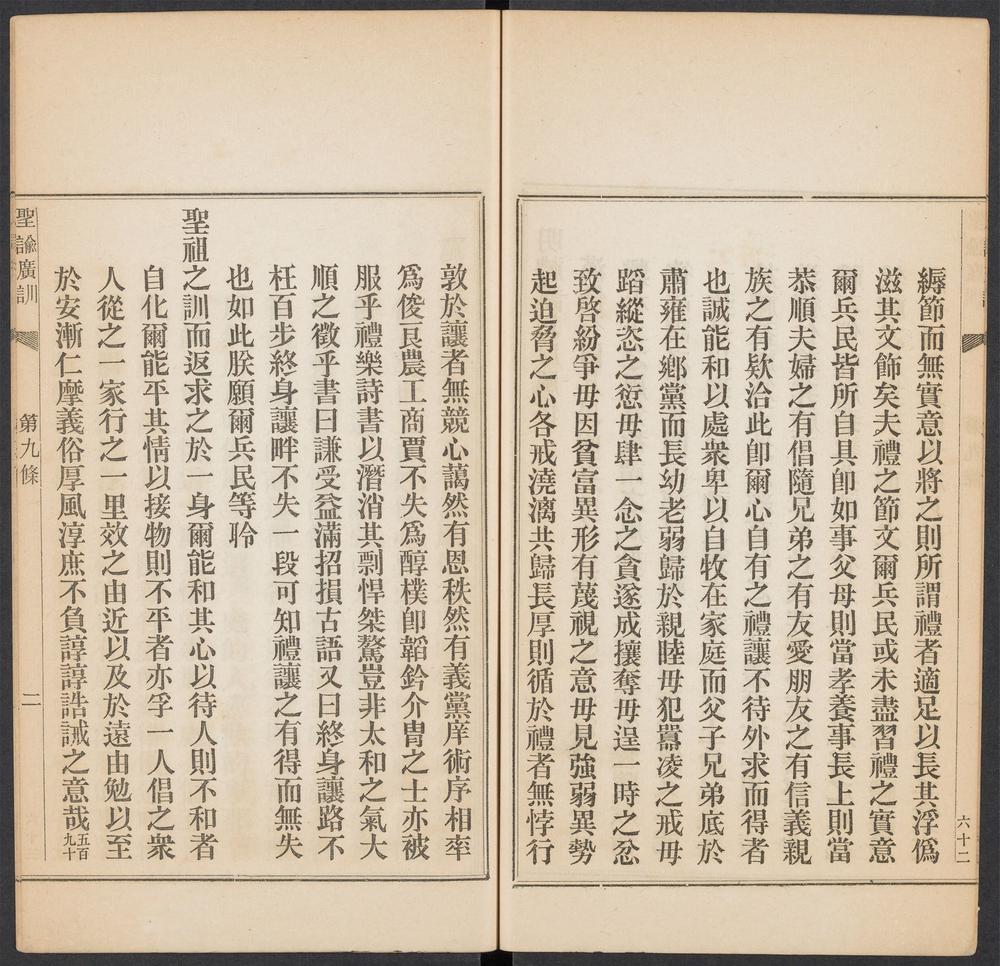 縟節而無實意以將之則所謂禮者適足以長其浮僞
滋其文飾矣夫禮之節文爾兵民或未盡習禮之實意
爾兵民皆所自具卽如事父母則當孝養事長上則當
恭順夫婦之有倡隨兄弟之有友愛朋友之有信義親
族之有欵洽此卽爾心自有之禮讓不待外求而得者
也誠能和以處衆卑以自牧在家庭而父子兄弟底於
肅雍在鄕黨而長幼老弱歸於親睦毋犯囂凌之戒毋
蹈縱恣之愆毋肆一念之貪遂成攘奪毋逞一時之忿
致啓紛爭毋因貧富異形有蔑視之意毋見強弱異勢
起迫脅之心各戒澆漓共歸長厚則循於禮者無悖行
六十二
敦於讓者無競心藹然有恩秩然有義黨庠術序相率
爲俊良農工商賈不失爲醇樸卽韜鈐介冑之士亦被
服乎禮樂詩書以潛消其剽悍桀驁豈非太和之氣大
順之徵乎書曰謙受益滿招損古語又曰終身讓路不
枉百步終身讓畔不失一段可知禮讓之有得而無失
也如此朕願爾兵民等聆
聖祖之訓而返求之於一身爾能和其心以待人則不和者
自化爾能平其情以接物則不平者亦孚一人倡之衆
人從之一家行之一里效之由近以及於遠由勉以至
於安漸仁摩義俗厚風淳庶不負諄諄誥誡之意哉五百九十
聖諭廣訓 第九條 二